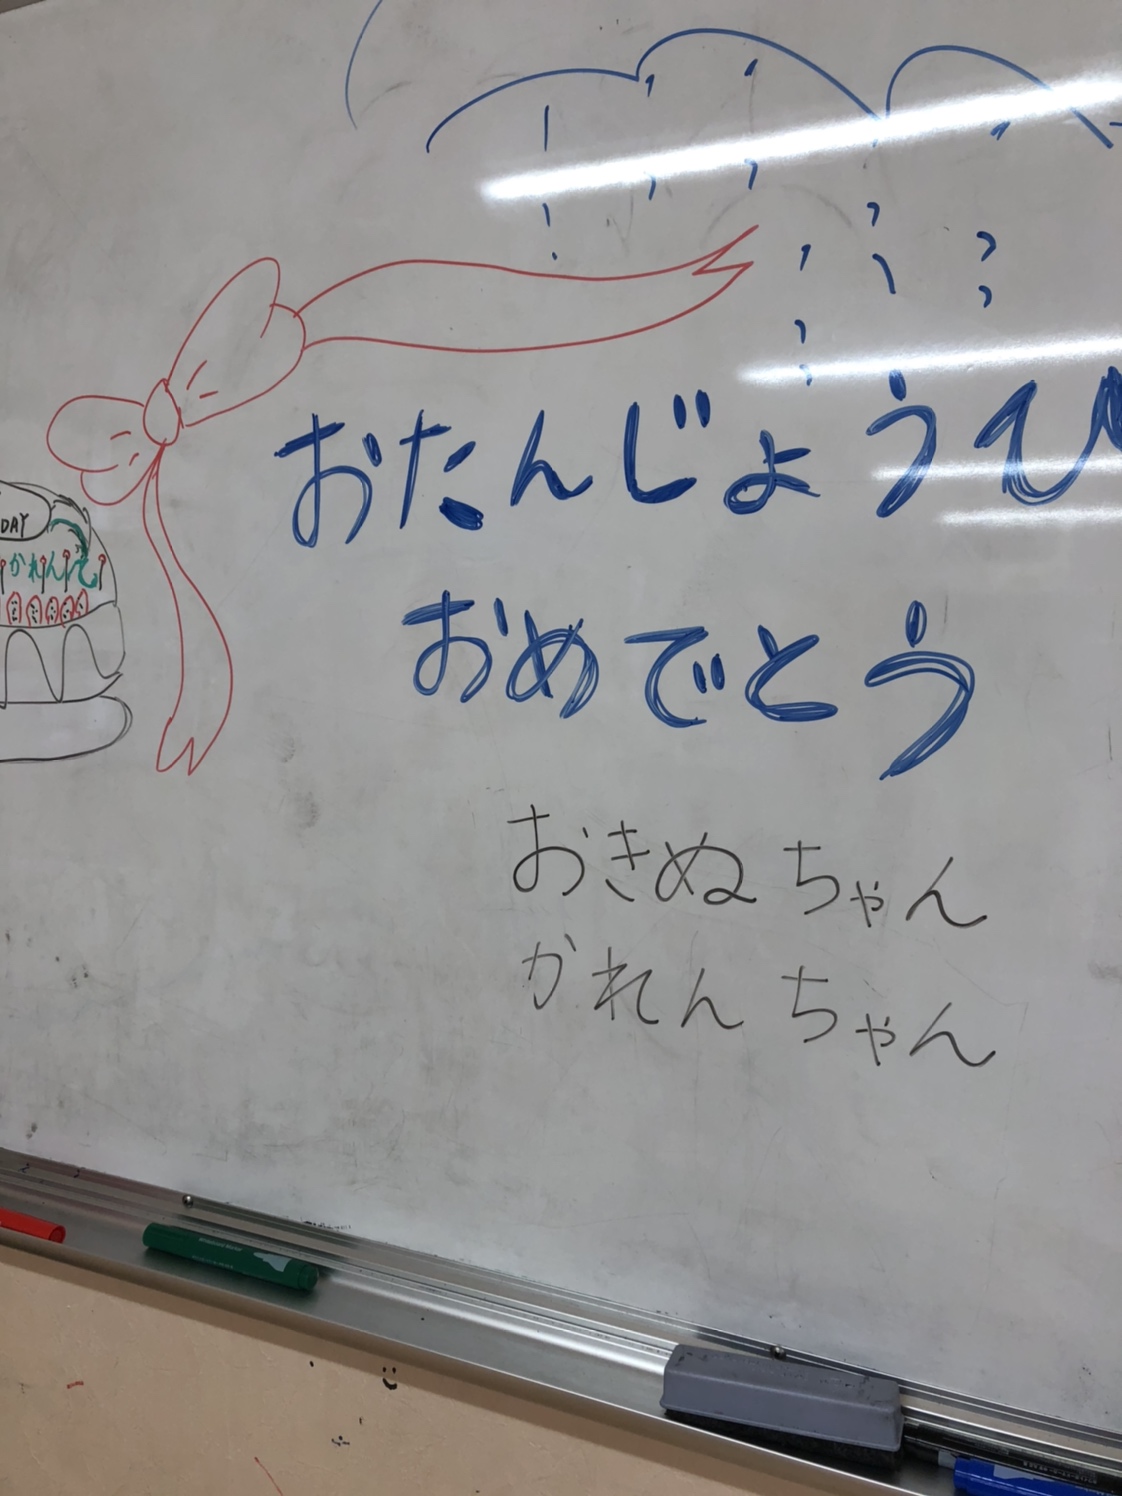 おたんじょうび
おめでとう
DAY
かれんて
おきぬちゃん
かれんちゃん